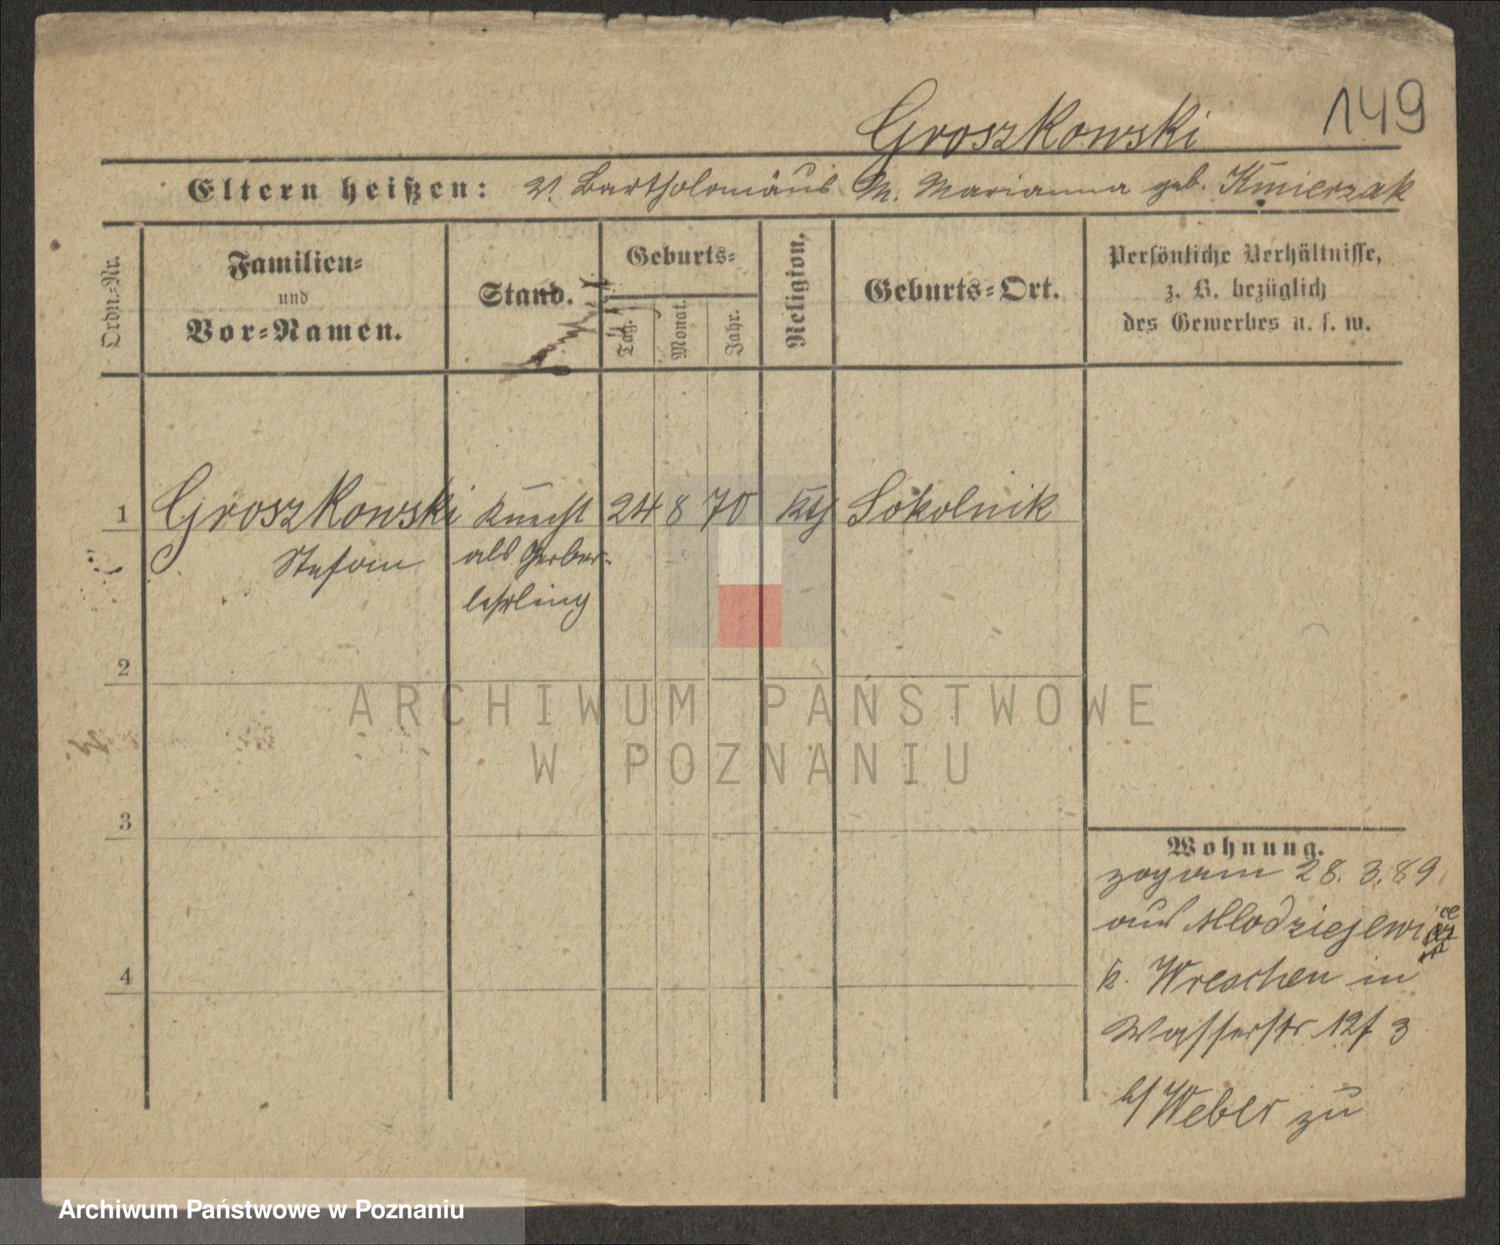 149
Groszkowski
Eltern heißen: V. Bartholomäus M. Marianna geb. Kmierzak
Ordn.-Nr.
Familien-
und
Vor-Namen.
Stand.
Geburts-
Tag.
Monat.
Jahr.
Religion.
Geburts-Ort.
Persönliche Verhältnisse,
z. B. bezüglich
des Gewerbes u. s. w.
1 Groszkowski Knecht 24 8 70 Sokolnik
Stefan als Gerber-
lehrling
2
3
4
Wohnung.
zog am 28. 3. 89
aus Mlodziejewice
k. Wreschen in
Wasserstr 12 3
b/ Weber zu
ARCHIWUM PAŃSTWOWE
W POZNANIU
Archiwum Państwowe w Poznaniu